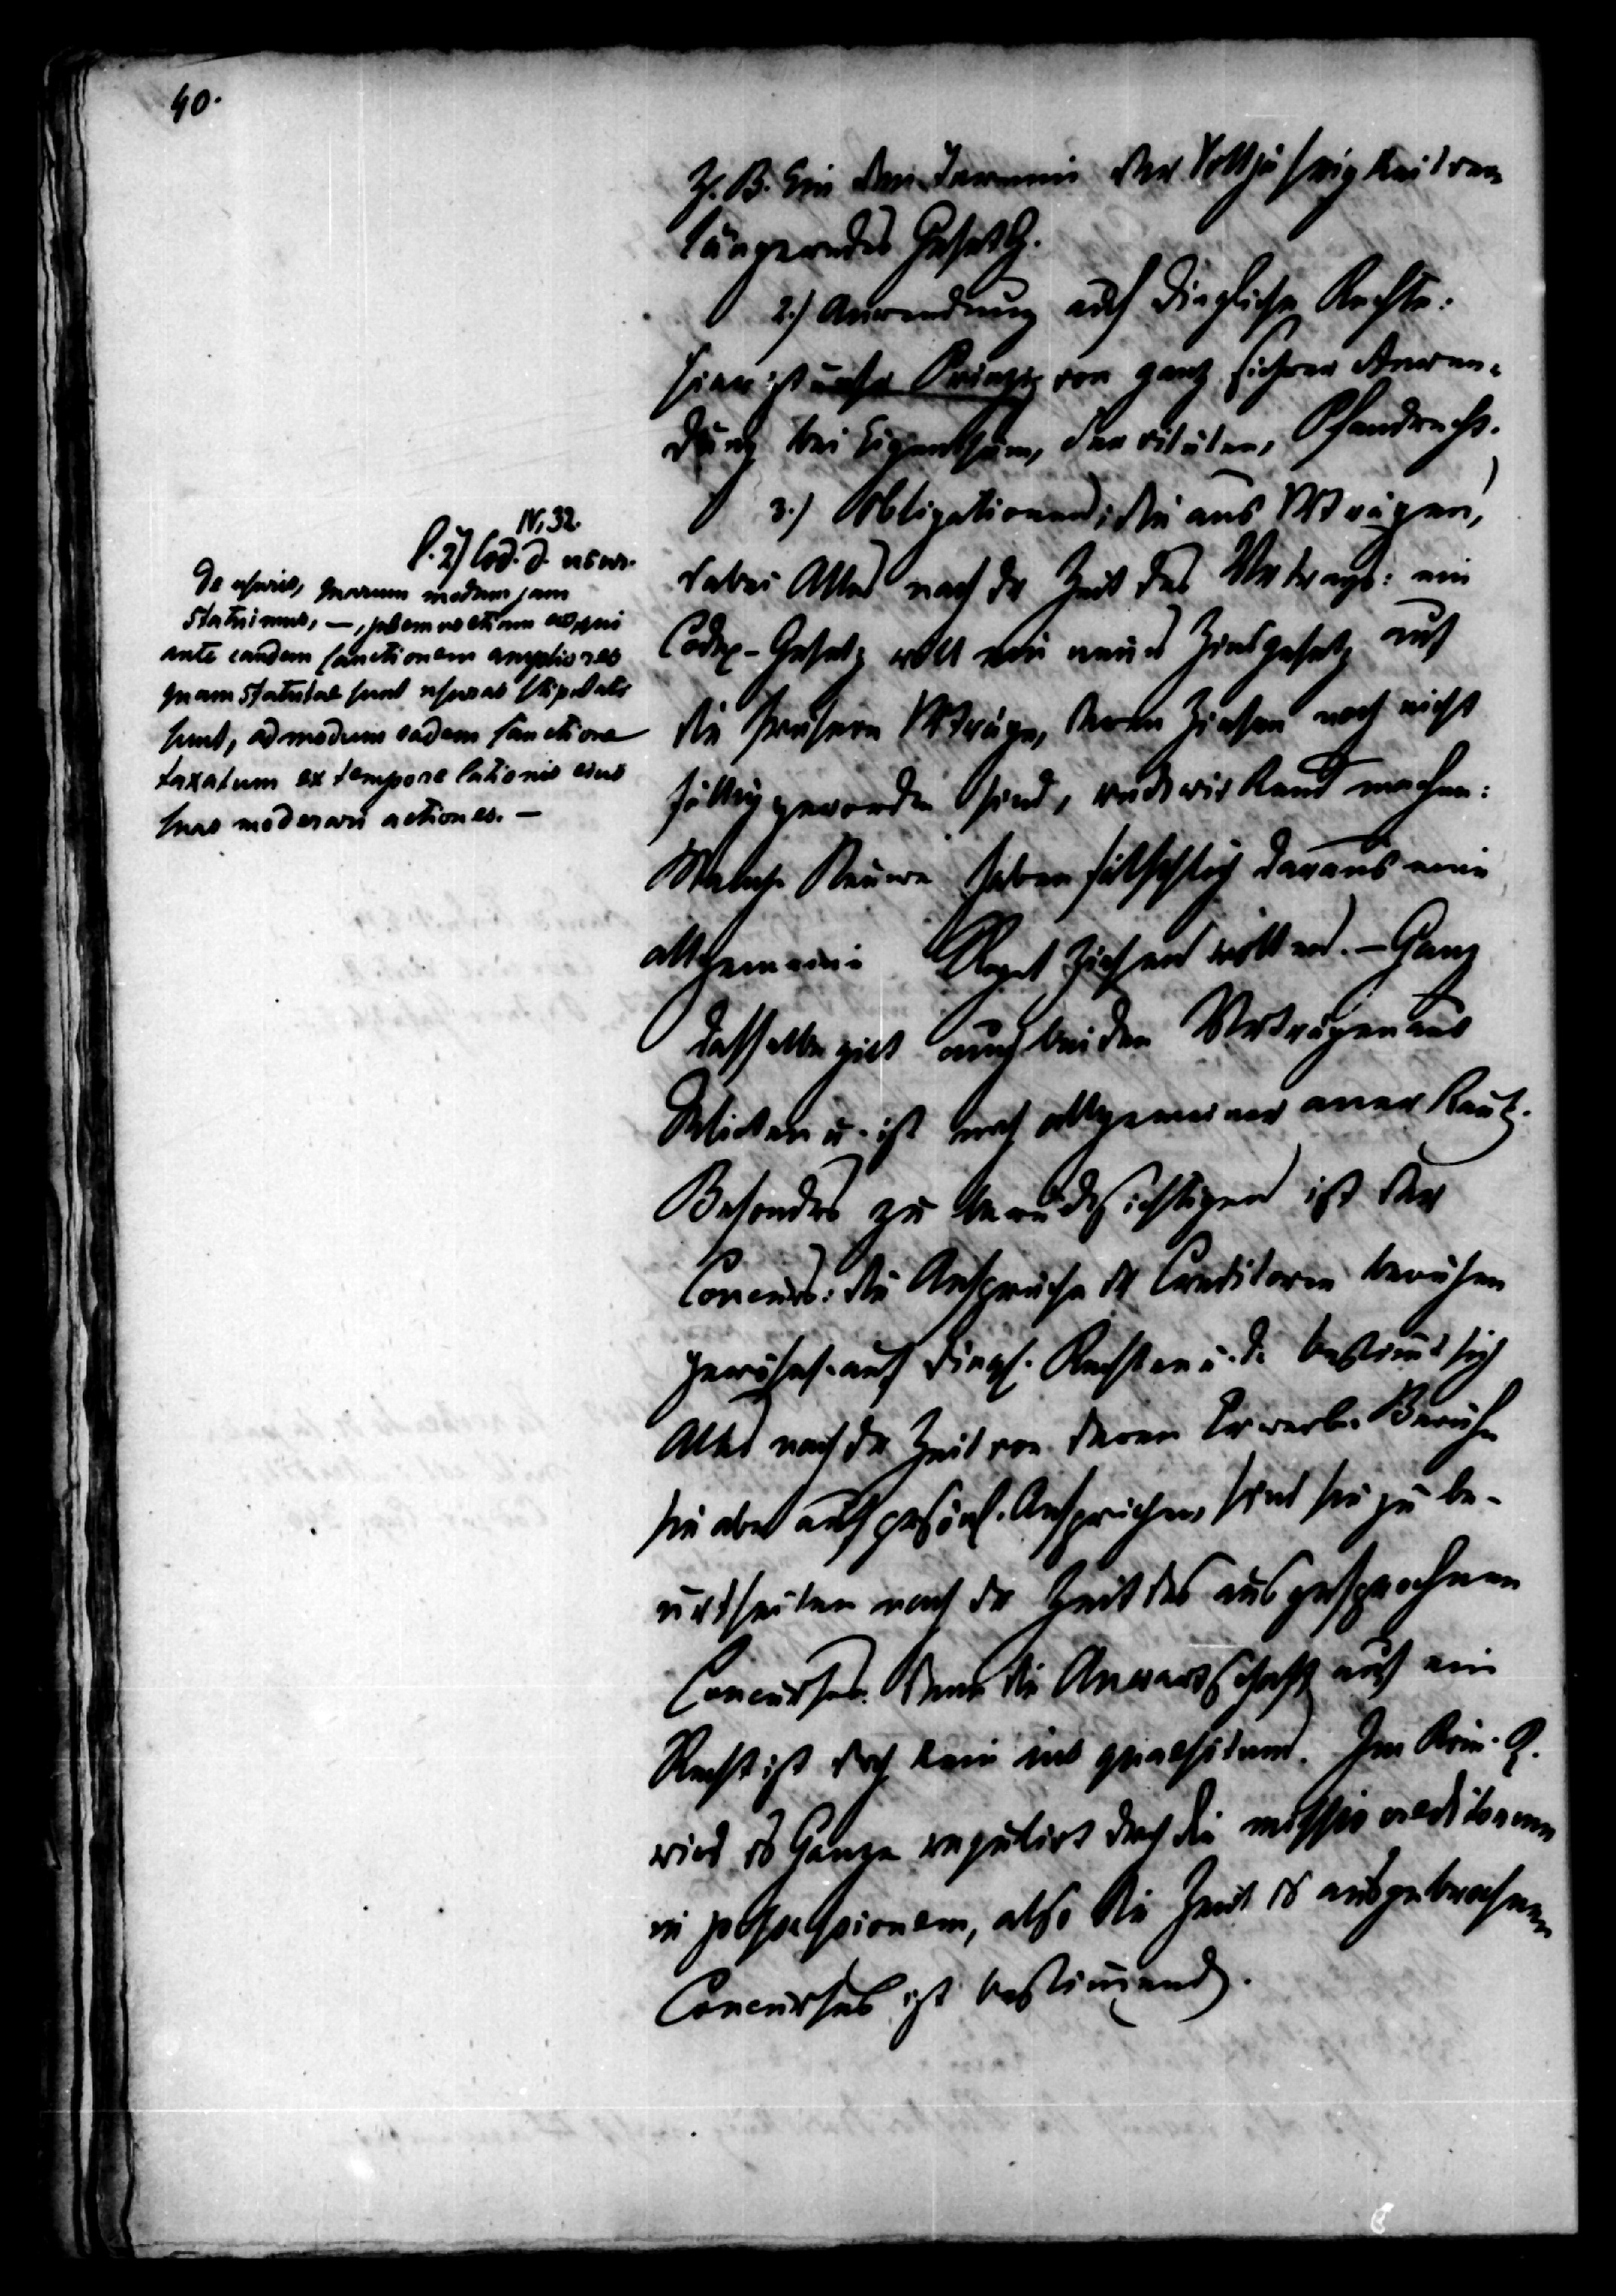 40.
Z. B. Ein den Termin der Volljährigkeit ver-
längerndes Gesetz.
2.) Anwendung auf dingliche Rechte:
hier ist unser Prinzip von ganz sichrer Anwen-
dung bei Eigenthum, Servituten, Pfandrecht.
3.) Obligationen: die aus Verträgen,
dabei Alles nach der Zeit des Vertrags: ein
Codex-Gesetz will ein neues Zinsgesetz auf
die frühern Verträge, deren Zinsen noch nicht
fällig geworden sind, rückwirkend machen:
Manche Neuere haben fälschlich daraus eine
allgemeine Regel ziehen wollen. – Ganz
dasselbe gilt auch bei den Verträgen aus
Delicten u. ist noch allgemeiner anerkannt.
Besonders zu berücksichtigen ist der
Concurs: die Ansprüche der Creditoren beruhen
gewöhnl. auf dingl. Rechten u. da bestimmt sich
Alles nach der Zeit von deren Erwerb. Beruhen
sie aber auf persönl. Ansprüchen, sind sie zu be-
urtheilen nach der Zeit des ausgesprochnen
Concurses. Denn die Anwartschaft auf ein
Recht ist doch kein ius quaesitum. Im Röm. R.
wird das Ganze regulirt durch die missio creditorum
in possessionem, also die Zeit des ausgebrochnen
Concurses ist bestimmend.
IV, 32.
l. 27 Cod. d. usur.
De usuris, quarum modum jam
statuimus, —, jubemus etiam eos, qui
ante eandem sanctionem ampliores
quam statutae sunt usuras stipulati
sunt, ad modum eadem sanctione
taxatum ex tempore lationis eius
suas moderari actiones. —